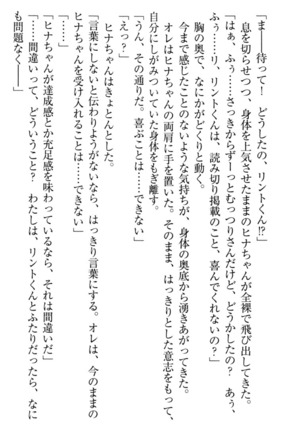 「まー―待って！　どうしたの、リントくん!?」
息を切らせつつ、身体を上気させたままのヒナちゃんが全裸で飛び出してきた。
「はぁ、ふぅ……さっきからずーっとむっつりさんだけど、どうかしたの？　あぅ、
ふぅ……リ、リントくんは、読み切り掲載のこと、喜んでくれないの？」
胸の奥で、なにかがどくりと動く。
今まで感じたことのないような気持ちが、身体の奥底から湧きあがってきた。
オレはヒナちゃんの両肩に手を置いた。そのまま、はっきりとした意志をもって、
自分にしがみついていた身体をもぎ離す。
「うん、その通りだ。喜ぶことは……できない」
「えっ？」
ヒナちゃんはきょとんとした。
「言葉にしないと伝わりようがないなら、はっきり言葉にする。オレは、今のままの
ヒナちゃんを受け入れることは……できない」
「……」
「ヒナちゃんが達成感とか充足感を味わっているなら、それは間違いだ」
「……間違いって、どういうこと？　わたしは、リントくんとふたりだったら、なに
も問題なく――」